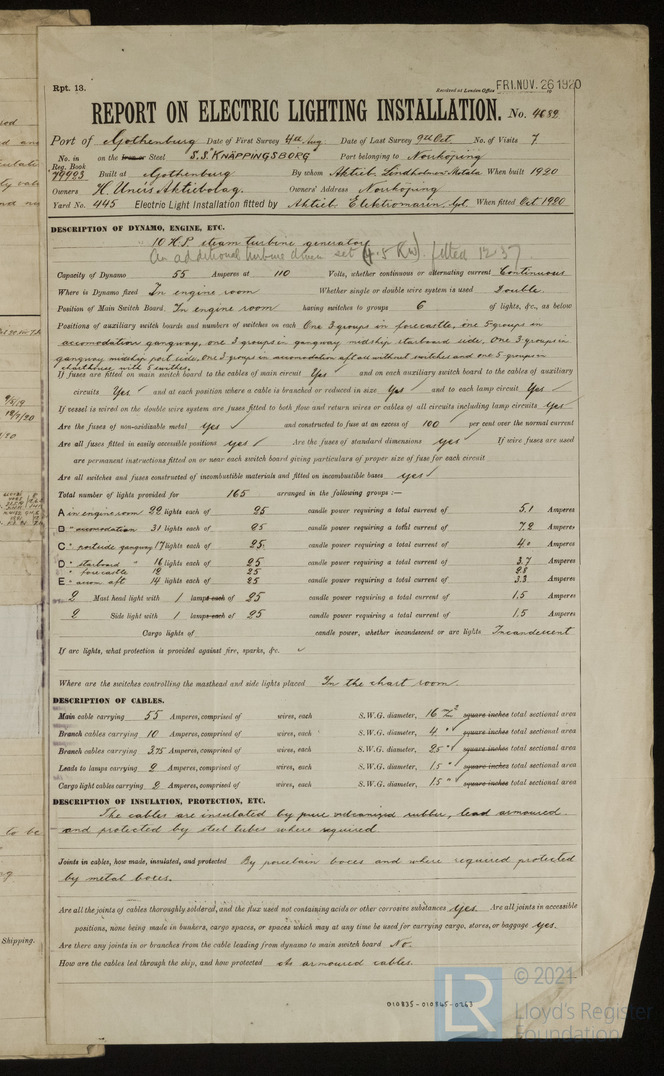 Rpt. 13.
Received at London Office FRI. NOV. 26 1920
REPORT ON ELECTRIC LIGHTING INSTALLATION. No. 4682
Port of Gothenburg Date of First Survey 4th Aug. Date of Last Survey 9th Oct. No. of Visits 7
No. in Reg. Book on the Iron or Steel S.S. "KNÄPPINGSBORG" Port belonging to Norrköping
79923 Built at Gothenburg By whom Aktieb. Lindholmen-Motala When built 1920
Owners H. Uners Aktiebolag. Owners' Address Norrköping
Yard No. 445 Electric Light Installation fitted by Aktieb. Elektromaren, Gbt. When fitted Oct 1920
DESCRIPTION OF DYNAMO, ENGINE, ETC.
10 H.P. steam turbine generator
An additional turbine driven set (4.5 KW). fitted 12.37.
Capacity of Dynamo 55 Amperes at 110 Volts, whether continuous or alternating current Continuous
Where is Dynamo fixed In engine room Whether single or double wire system is used Double.
Position of Main Switch Board In engine room having switches to groups 6 of lights, &c., as below
Positions of auxiliary switch boards and numbers of switches on each One 3 groups in forecastle, one 5 groups in
accomodation gangway, one 3 groups in gangway midship starboard side, One 3 groups in
gangway midship port side, One 3 groups in accomodation aft all without switches and one 5 groups in
charthouse with 5 swithes.
If fuses are fitted on main switch board to the cables of main circuit Yes and on each auxiliary switch board to the cables of auxiliary
circuits Yes and at each position where a cable is branched or reduced in size Yes and to each lamp circuit Yes
If vessel is wired on the double wire system are fuses fitted to both flow and return wires or cables of all circuits including lamp circuits Yes
Are the fuses of non-oxidizable metal Yes and constructed to fuse at an excess of 100 per cent over the normal current
Are all fuses fitted in easily accessible positions Yes Are the fuses of standard dimensions yes If wire fuses are used
are permanent instructions fitted on or near each switch board giving particulars of proper size of fuse for each circuit
Are all switches and fuses constructed of incombustible materials and fitted on incombustible bases yes
Total number of lights provided for 165 arranged in the following groups :—
A in engine room 22 lights each of 25 candle power requiring a total current of 5.1 Amperes
B " accomodation 31 lights each of 25 candle power requiring a total current of 7.2 Amperes
C " portside gangway 17 lights each of 25 candle power requiring a total current of 4.0 Amperes
D " starboard " 16 lights each of 25 candle power requiring a total current of 3.7 Amperes
" forecastle 12 25 2.8
E " accom aft 14 lights each of 25 candle power requiring a total current of 3.3 Amperes
2 Mast head light with 1 lamps each of 25 candle power requiring a total current of 1.5 Amperes
2 Side light with 1 lamps each of 25 candle power requiring a total current of 1.5 Amperes
Cargo lights of candle power, whether incandescent or arc lights Incandescent
If arc lights, what protection is provided against fire, sparks, &c.
Where are the switches controlling the masthead and side lights placed In the chart room.
DESCRIPTION OF CABLES.
Main cable carrying 55 Amperes, comprised of wires, each S.W.G. diameter, 16 square inches total sectional area
Branch cables carrying 10 Amperes, comprised of wires, each S.W.G. diameter, 4 " square inches total sectional area
Branch cables carrying 3.75 Amperes, comprised of wires, each S.W.G. diameter, 25 " square inches total sectional area
Leads to lamps carrying 2 Amperes, comprised of wires, each S.W.G. diameter, 1.5 " square inches total sectional area
Cargo light cables carrying 2 Amperes, comprised of wires, each S.W.G. diameter, 1.5 " square inches total sectional area
DESCRIPTION OF INSULATION, PROTECTION, ETC.
The cables are insulated by pure vulcanized rubber, lead armoured
and protected by steel tubes where required
Joints in cables, how made, insulated, and protected By porcelain boces and where required protected
by metal boces.
Are all the joints of cables thoroughly soldered, and the flux used not containing acids or other corrosive substances yes. Are all joints in accessible
positions, none being made in bunkers, cargo spaces, or spaces which may at any time be used for carrying cargo, stores, or baggage yes.
Are there any joints in or branches from the cable leading from dynamo to main switch board No.
How are the cables led through the ship, and how protected as armoured cables.
010835-010845-0263
LR
© 2021
Lloyd's Register
Foundation
to be
Shipping.